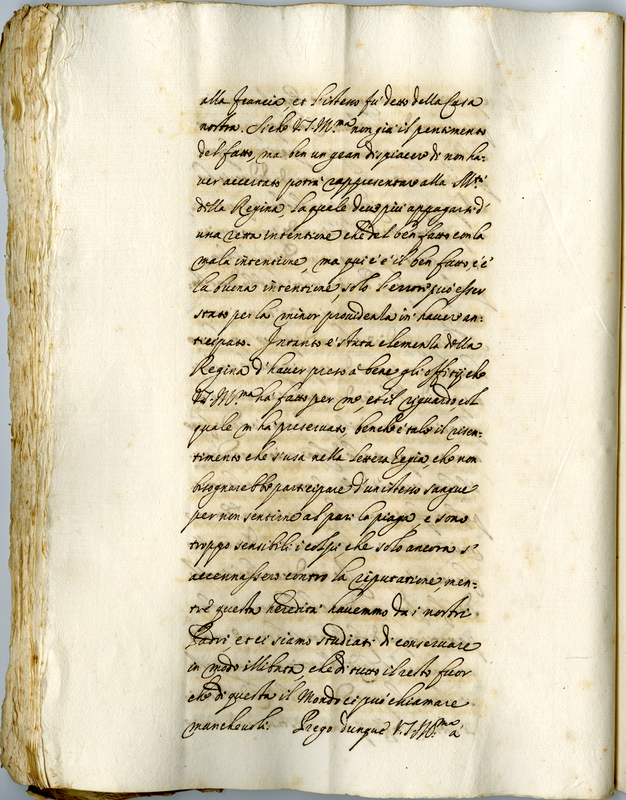 alla Francia, et l'istesso fu' detto della Casa
nostra. Siche V.S.Ill.ma non gia' il pentimento
del fatto, ma ben un gran dispiacere di non ha-
ver accertato potra' rappresentare alla M.tà
della Regina, la quale deve piu appagarsi d'
una retta intentione che del ben fatto con la
mala intentione, ma qui c'è il ben fatto, c'è
la buona intentione, solo l'errore può esser
stato per la minor providenza in haver an-
ticipato. Intanto e' stata clemenza della
Regina d'haver preso à bene gli offitij che
V.S.Ill.ma ha' fatto per me, et il riguardo col
quale m'ha preservato, benche e' tale il risen-
timento che s'usa nella lettera Regia, che non
bisognarebbe participare d'un istesso sangue
per non sentirne al pari la piaga, e sono
troppo sensibili i colpi, che solo ancora s'
accennassero contro la riputatione, men-
tre questa heredita' havemmo da i nostri
Padri, et ci siamo studiati di conservare
in modo illibata, che di tutto il resto fuor
che di questa il Mondo ci può chiamare
manchevoli. Prego dunque V.S.Ill.ma à